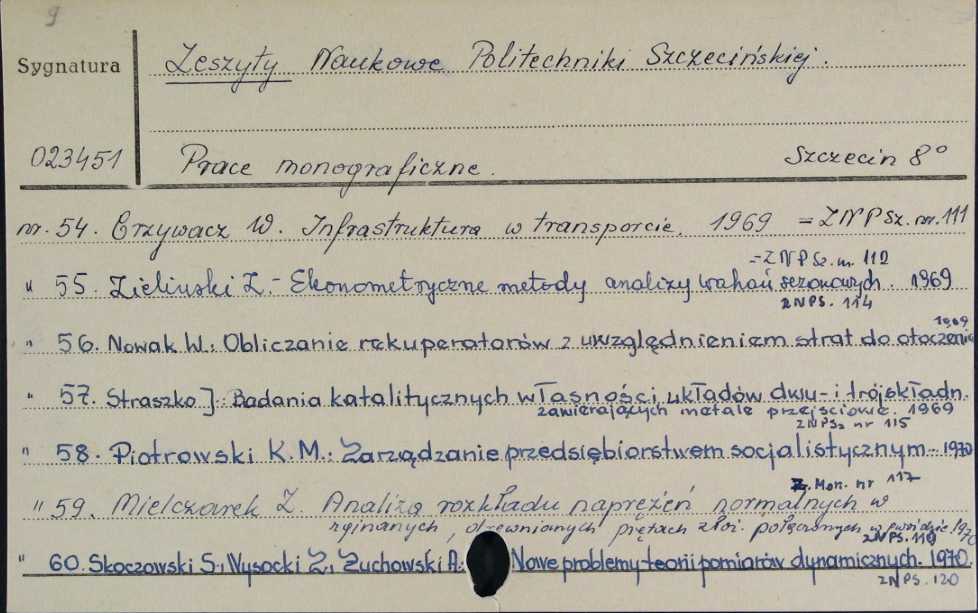 9
Sygnatura Zeszyty Naukowe Politechniki Szczecińskiej.
023451 Prace monograficzne. Szczecin 8°
nr. 54. Grzywacz W. Infrastruktura w transporcie. 1969 = ZNPSz. nr. 111
= ZNPSz. nr. 112
" 55. Zieliński Z. - Ekonometryczne metody analizy wahań sezonowych. 1969
ZNPS. 114
1969
" 56. Nowak W.: Obliczanie rekuperatorów z uwzględnieniem strat do otoczenia
" 57. Straszko J.: Badania katalitycznych własności układów dwu- i trójskładn.
zawierających metale przejściowe. 1969
ZNPSz nr 115
" 58. Piotrowski K.M.: Zarządzanie przedsiębiorstwem socjalistycznym. - 1970
Z. Mon. nr 117
" 59. Mielczarek Z. Analiza rozkładu naprężeń normalnych w
zginanych, drewnianych prętach złoż. połączonych 1970
ZNPS. 119
" 60. Skoczowski S., Wysocki Z., Żuchowski A.: Nowe problemy teorii pomiarów dynamicznych. 1970.
ZNPS. 120